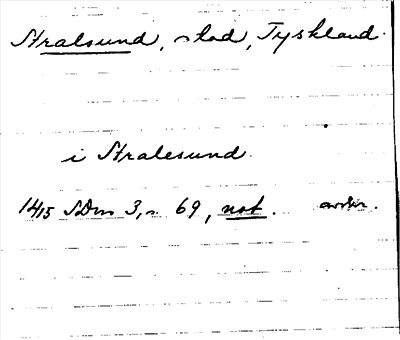 Stralsund, stad, Tyskland.
i Stralesund.
1415 SDns 3, s. 69, not. avskr.